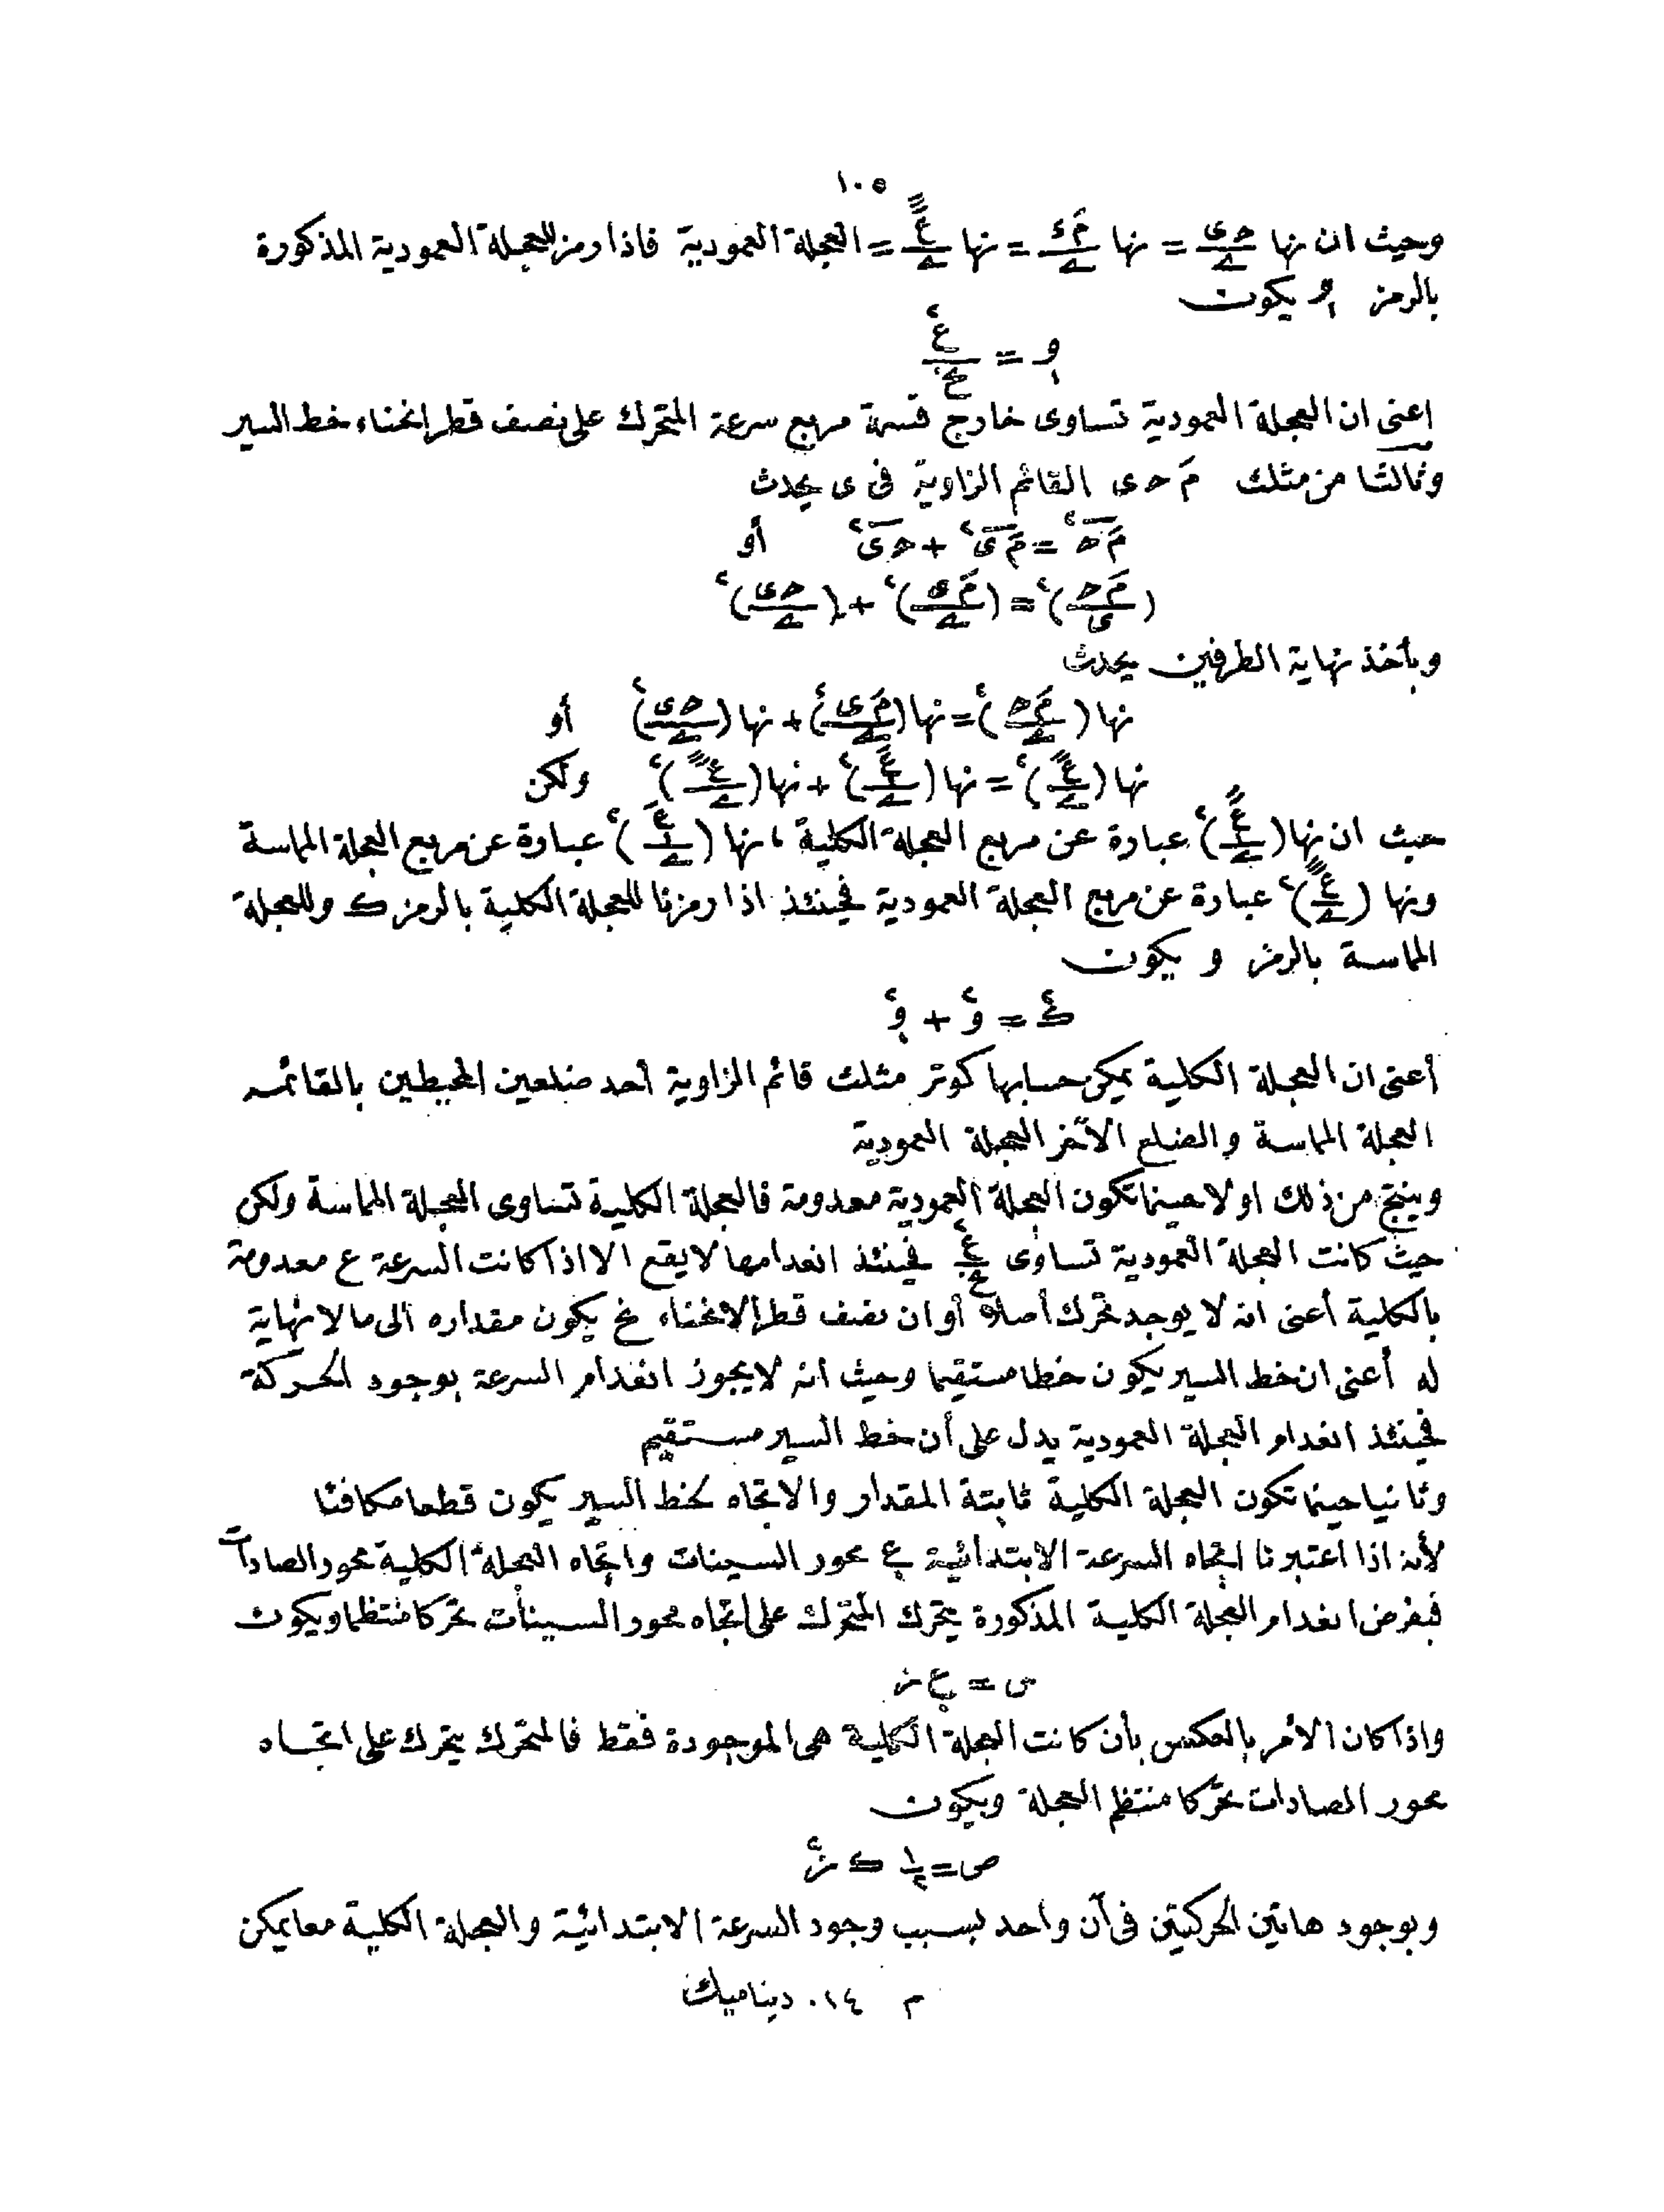 ١٠٥
وحيث ان نها حى/ے = نها مَ ك/ے = نها عٓ/ے = العجلة العمودية فاذا رمز للعجلة العمودية المذكورة
بالرمز و₁ يكون
و₁ = ع٢/نخ
اعنى ان العجلة العمودية تساوى خارج قسمة مربع سرعة المتحرك على نصف قطر انحناء خط السير
وثالثا من مثلث مَ حى القائم الزاوية فى ى يحدث
مَح٢ = مَى٢ + حى٢ أو
(مَح/ى)٢ = (مَى/ے)٢ + (حى/ے)٢
وبأخذ نهاية الطرفين يحدث
نها (مَح/ے)٢ = نها (مَى/ے)٢ + نها (حى/ے)٢ أو
نها (ع/ے)٢ = نها (ع/ے)٢ + نها (ع/ے)٢ ولكن
حيث ان نها (ع/ے)٢ عبارة عن مربع العجلة الكلية ، نها (ع/ے)٢ عبارة عن مربع العجلة المماسة
ونها (ع/ے)٢ عبارة عن مربع العجلة العمودية فحينئذ اذا رمزنا للعجلة الكلية بالرمز ك وللعجلة
المماسة بالرمز و يكون
ك٢ = و٢ + و₁٢
أعنى ان العجلة الكلية يمكن حسابها كوتر مثلث قائم الزاوية أحد ضلعين المحيطين بالقائمه
العجلة المماسة والضلع الآخر العجلة العمودية
وينتج من ذلك اولا حينما تكون العجلة العمودية معدومة فالعجلة الكلية تساوى العجلة المماسة ولكن
حيث كانت العجلة العمودية تساوى ع٢/نخ فحينئذ انعدامها لا يقع الا اذا كانت السرعة ع معدومة
بالكلية أعنى انه لا يوجد تحرك أصلا أو ان نصف قطر الانحناء نخ يكون مقداره الى ما لا نهاية
له أعنى ان خط السير يكون خطا مستقيما وحيث انه لا يجوز انعدام السرعة بوجود الحركة
فحينئذ انعدام العجلة العمودية يدل على أن خط السير مستقيم
وثانيا حينما تكون العجلة الكلية ثابتة المقدار والاتجاه لخط السير يكون قطعا مكافئا
لأنه اذا اعتبرنا اتجاه السرعة الابتدائية ع. محور السينات واتجاه العجلة الكلية محور الصادات
فبفرض انعدام العجلة الكلية المذكورة يتحرك المتحرك على اتجاه محور السينات تحركا منتظما ويكون
س = ع. ز
واذا كان الأمر بالعكس بأن كانت العجلة الكلية هى الموجودة فقط فالمتحرك يتحرك على اتجاه
محور الصادات تحركا منتظم العجلة ويكون
ص = ١/٢ ك ز٢
وبوجود هاتين الحركيتين فى آن واحد بسبب وجود السرعة الابتدائية والعجلة الكلية معا يمكن
م ١٤. ديناميك